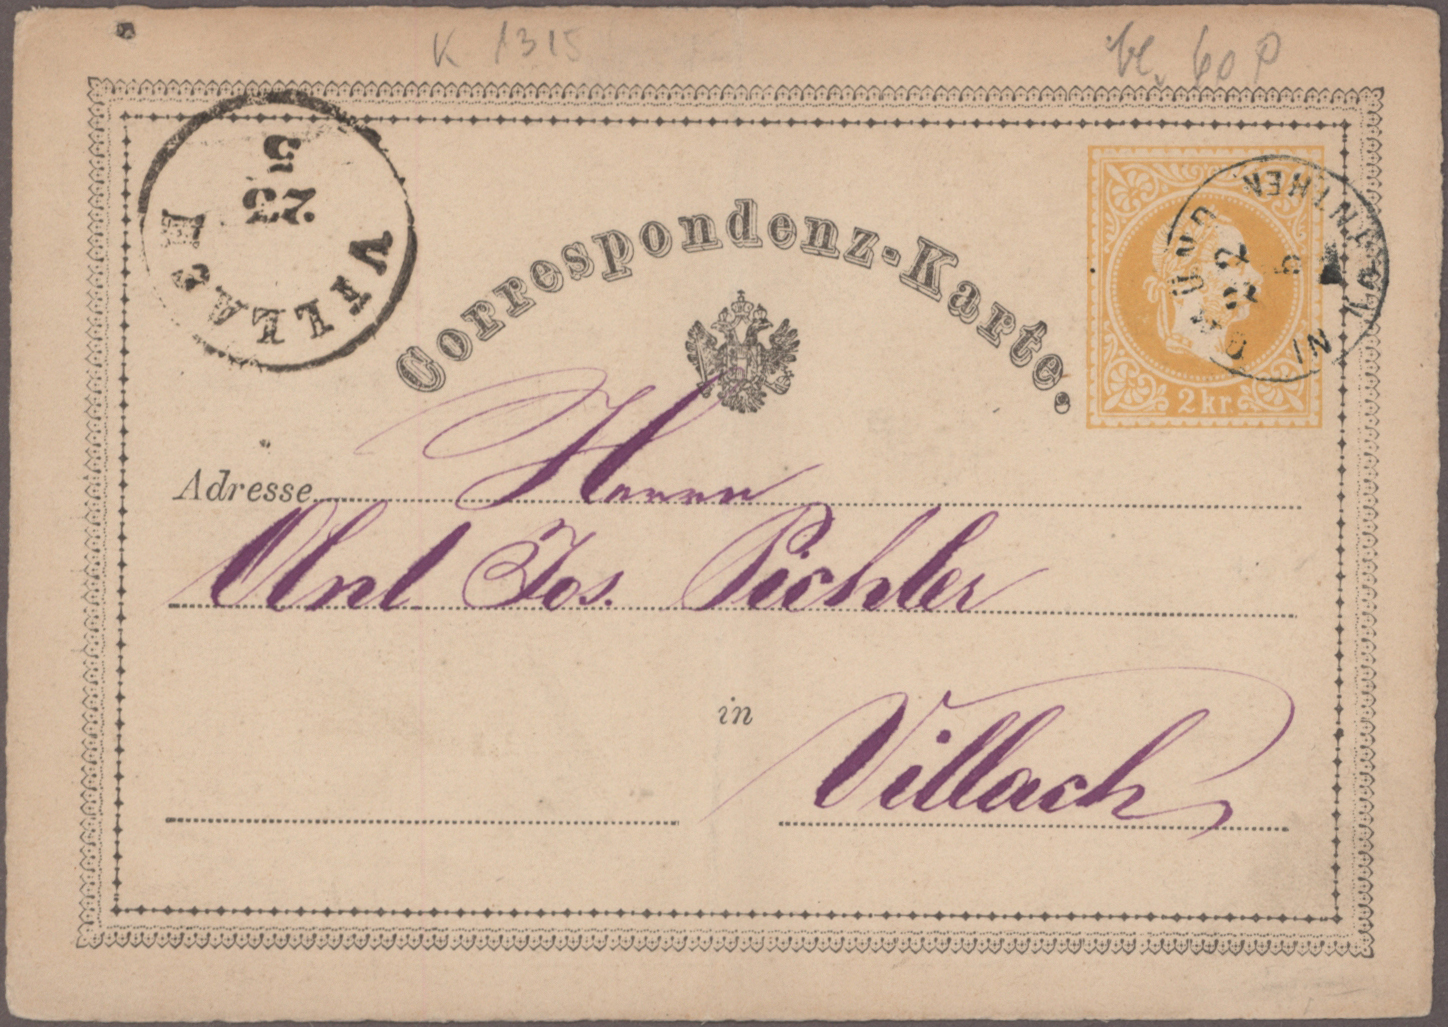 K 1315
60
VILLACH
23
5
Correspondenz-Karte.
GMÜND
IN KÄRNTHEN
22
5
2 kr.
Adresse Herrn
Jos. Pichler
in Villach